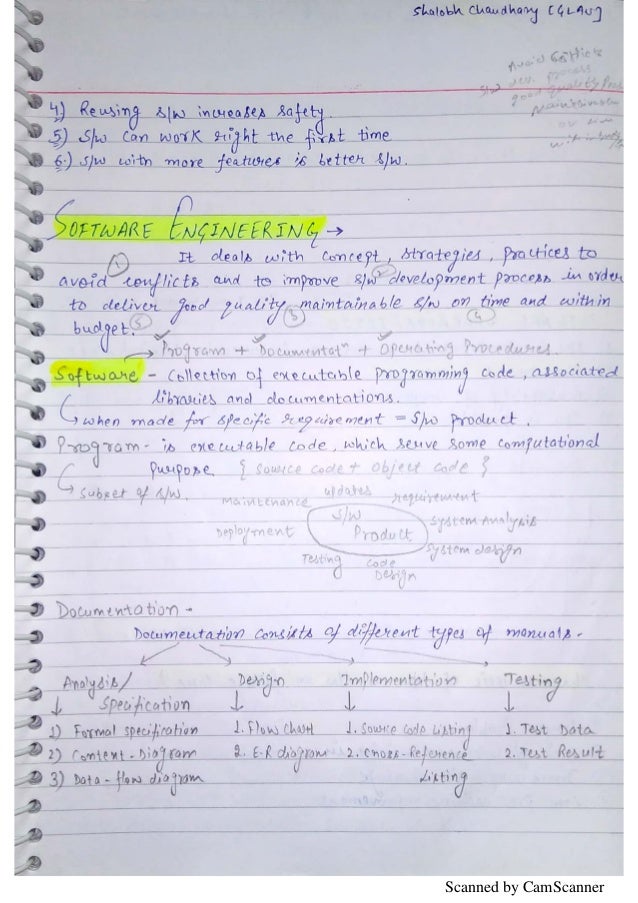 Shalobh Chaudhary [GLAU]
Avoid conflicts
S/w dev. process
good quality
Maintainable
on time
within
4) Reusing s/w increases safety.
5) S/w can work right the first time
6.) s/w with more features is better s/w.
SOFTWARE ENGINEERING →
It deals with concept, strategies, practices to
① avoid conflicts and to improve s/w ② development process in order
to deliver good quality, maintainable s/w on time and within
budget. ⑤ ③ ④
→ Program + Documentatⁿ + Operating Procedures.
Software - Collection of executable programming code, associated
libraries and documentations.
↳ when made for specific requirement = S/w product.
Program - is executable code, which serve some computational
purpose { source code + object code }
↳ subset of s/w.
updates
Maintenance requirement
S/w
Product
Deployment System Analysis
System design
Testing Code
Design
Documentation -
Documentation consists of different types of manuals -
Analysis/ Design Implementation Testing
↓ Specification ↓ ↓ ↓
1) Formal specification 1. Flow Chart 1. Source Code Listing 1. Test Data
2) Content-Diagram 2. E-R diagram 2. cross-Reference 2. Test Result
3) Data-flow diagram Listing
Scanned by CamScanner